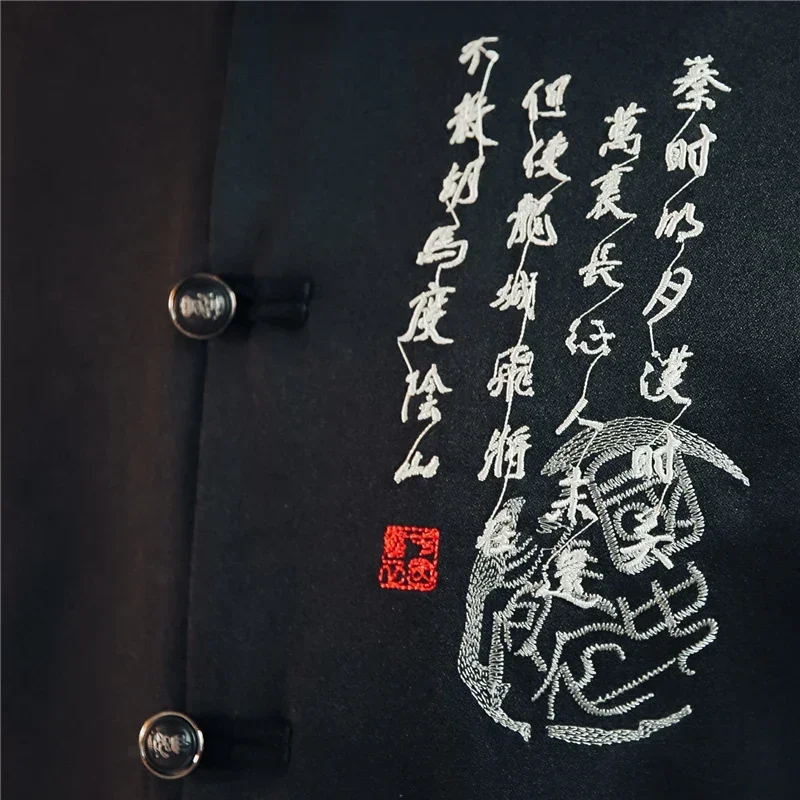 秦时明月漢时关
萬裏長征人未還
但使龍城飛將在
不教胡馬度陰山